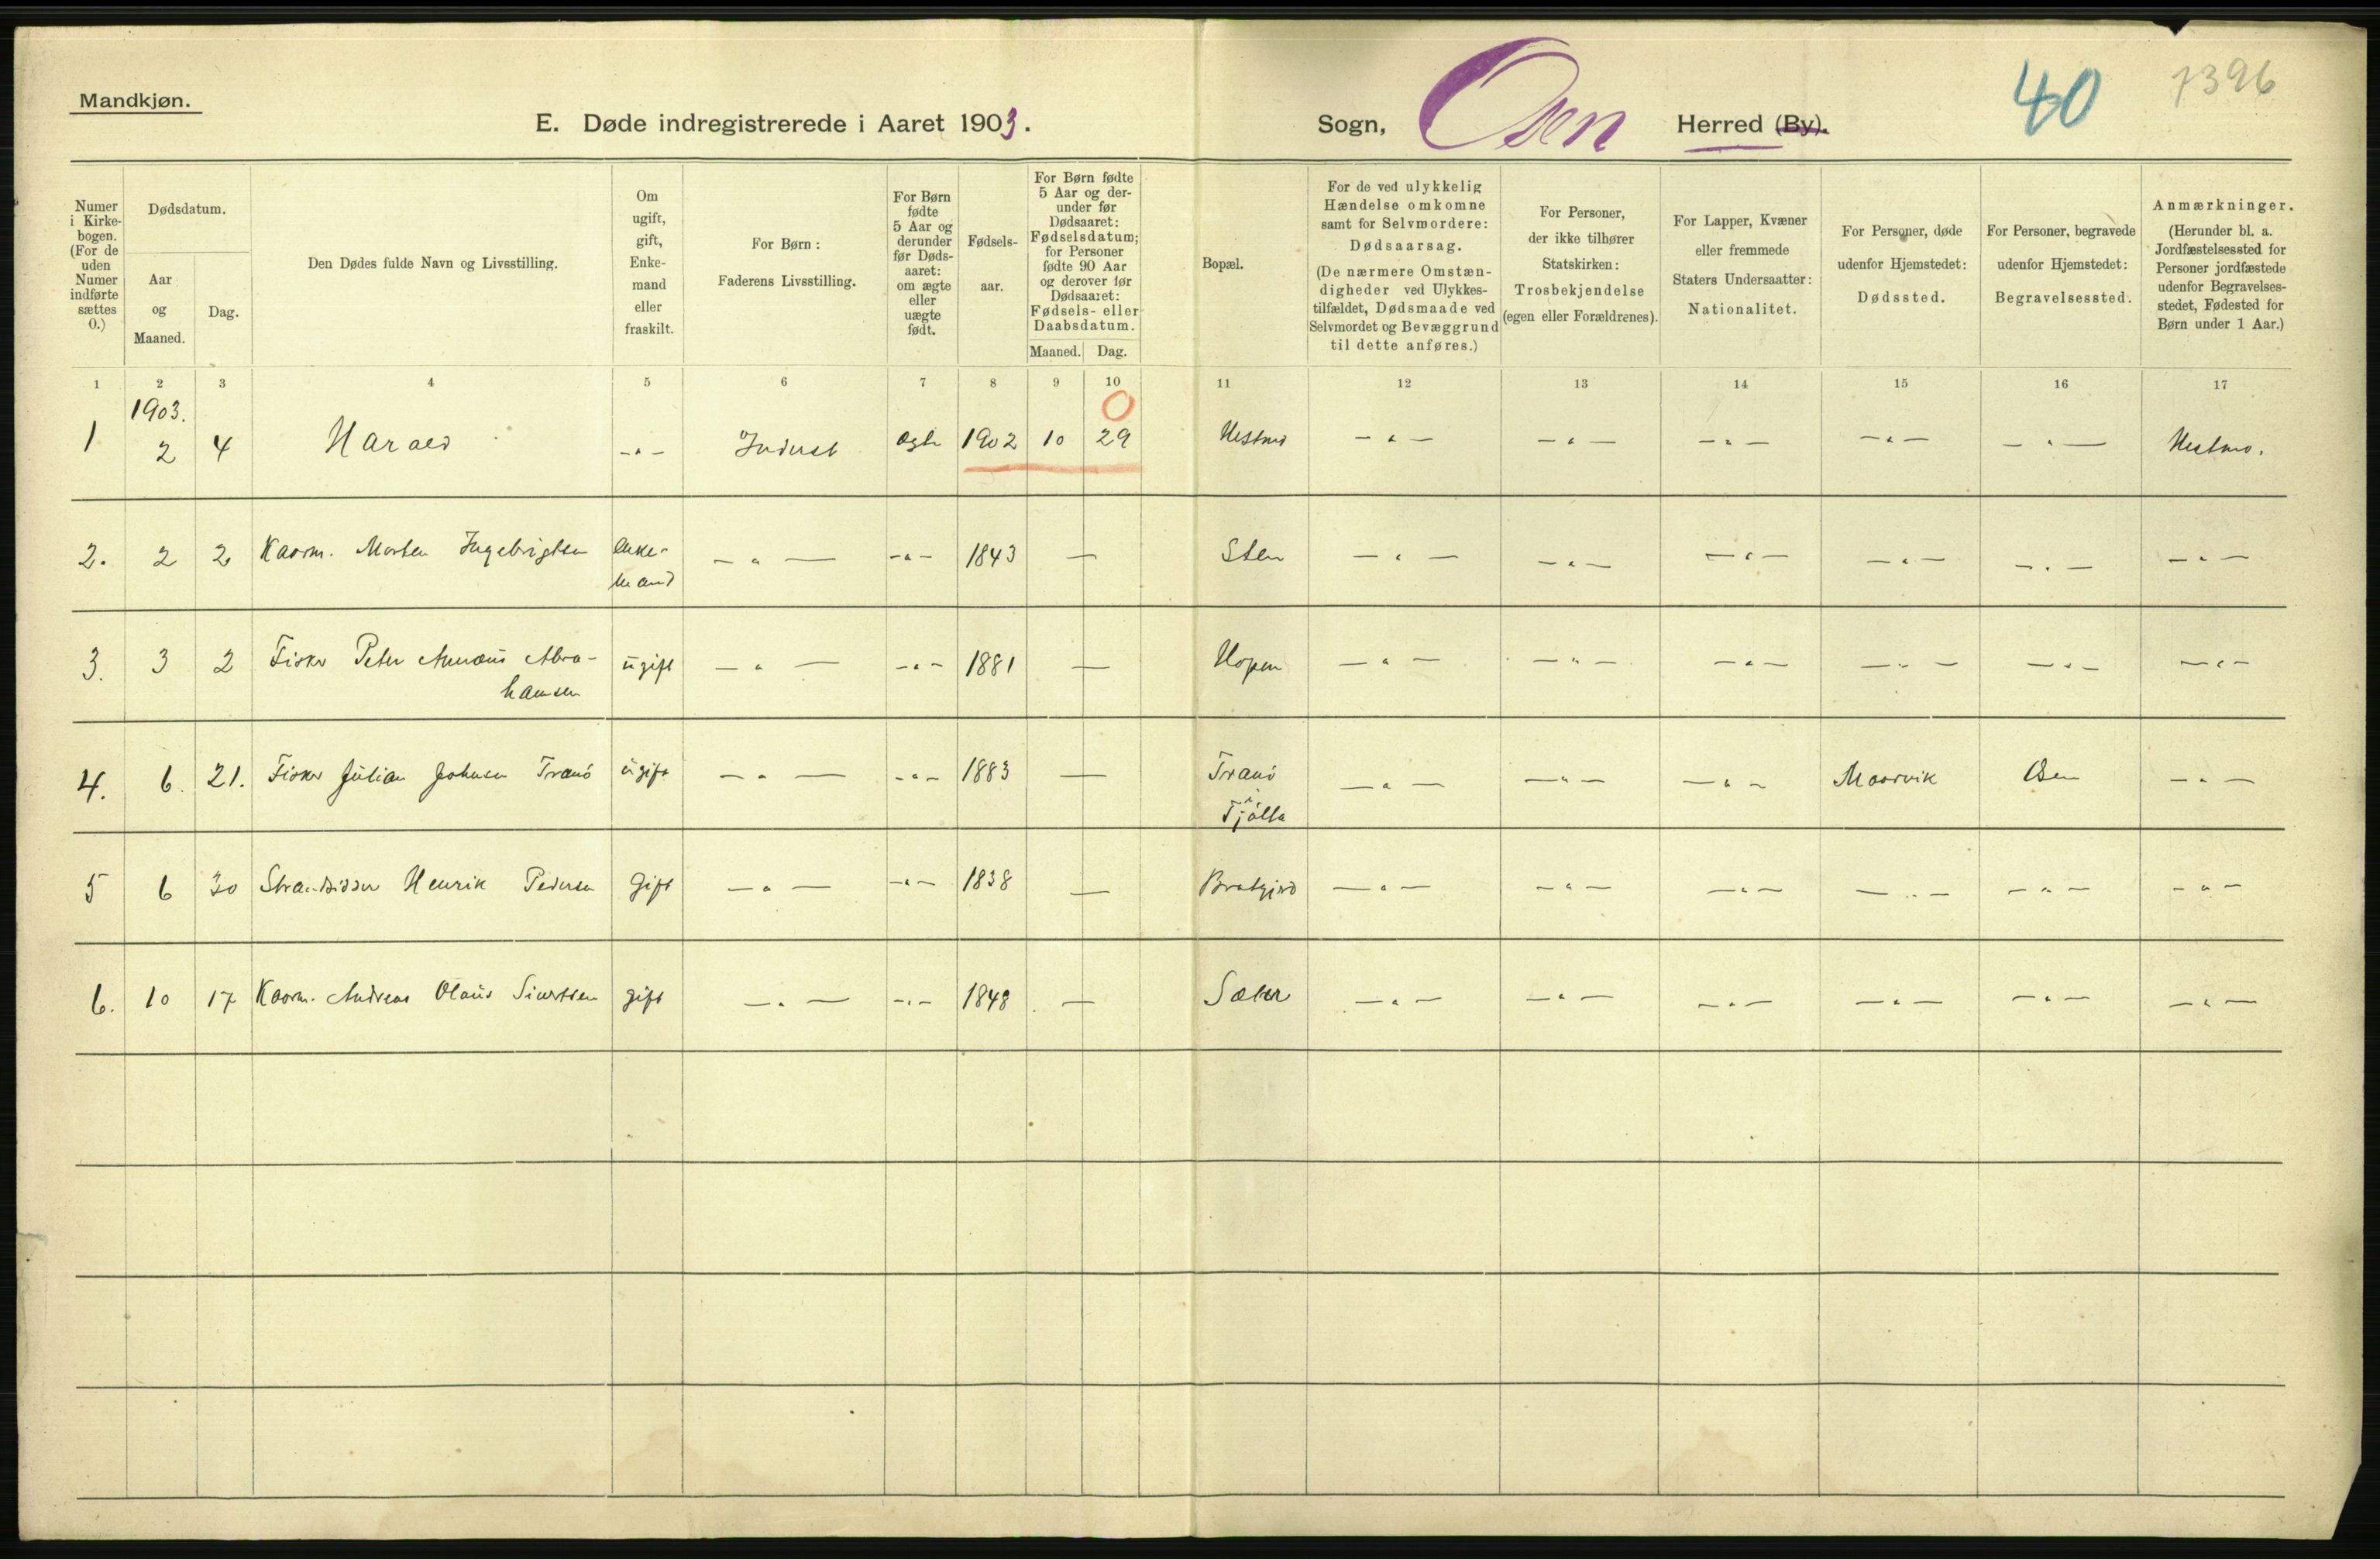 Mandkjøn.
E. Døde indregistrerede i Aaret 1903.
Sogn, Osen Herred (By).
40
7396
Numer i Kirkebogen. (For de uden Numer indførte sættes 0.)
Dødsdatum.
Aar og Maaned.
Dag.
Den Dødes fulde Navn og Livsstilling.
Om ugift, gift, Enkemand eller fraskilt.
For Børn: Faderens Livsstilling.
For Børn fødte 5 Aar og derunder før Dødsaaret: om ægte eller uægte født.
Fødselsaar.
For Børn fødte 5 Aar og derunder før Dødsaaret: Fødselsdatum; for Personer fødte 90 Aar og derover før Dødsaaret: Fødsels- eller Daabsdatum.
Maaned. Dag.
Bopæl.
For de ved ulykkelig Hændelse omkomne samt for Selvmordere: Dødsaarsag. (De nærmere Omstændigheder ved Ulykkestilfældet, Dødsmaade ved Selvmordet og Bevæggrund til dette anføres.)
For Personer, der ikke tilhører Statskirken: Trosbekjendelse (egen eller Forældrenes).
For Lapper, Kvæner eller fremmede Staters Undersaatter: Nationalitet.
For Personer, døde udenfor Hjemstedet: Dødssted.
For Personer, begravede udenfor Hjemstedet: Begravelsessted.
Anmærkninger. (Herunder bl. a. Jordfæstelsessted for Personer jordfæstede udenfor Begravelsesstedet, Fødested for Børn under 1 Aar.)
1 2 3 4 5 6 7 8 9 10 11 12 13 14 15 16 17
1903.
0
1 2 4 Harald - " - Inderst ægte 1902 10 29 Hestmo - " - - " - - " - - " - - " - Hestmo.
2. 2 2 Kaarm. Morten Ingebrigtsen Enkemand - " - - " - 1843 — Sten - " - - " - - " - - " - - " - - " -
3. 3 2 Fisker Peter Abrahamsen ugift - " - - " - 1881 — Hopen - " - - " - - " - - " - - " - - " -
4. 6. 21. Fisker Julian Johnsen Tranö ugift - " - - " - 1883 — Tranö i Tjötta - " - - " - - " - Moorvik Osen - " -
5 6 30 Strandsidder Henrik Pedersen Gift - " - - " - 1838 — Bratgjerd - " - - " - - " - - " - - " - - " -
6. 10 17 Kaarm. Andreas Olaus Siversen gift - " - - " - 1848 — Sæter - " - - " - - " - - " - - " - - " -